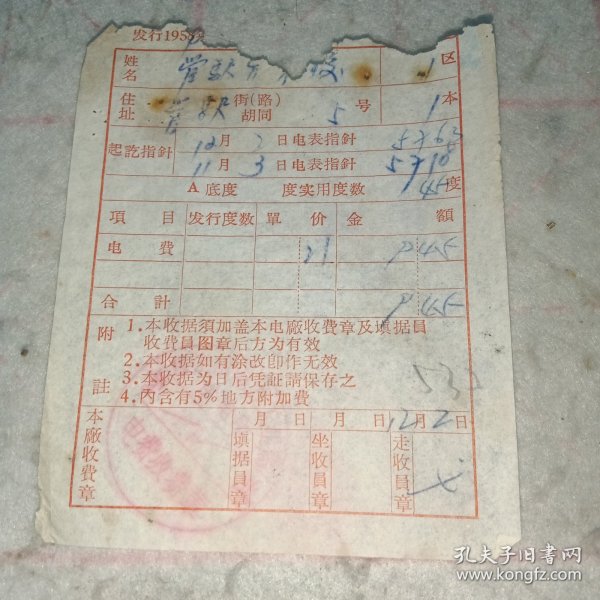 发行195
姓名 1 区
住址 街(路)胡同 5 号 1 本
起訖指針 12 月 2 日电表指針 5763
11 月 3 日电表指針 5718
A 底度 度实用度数 45 度
項目 发行度数 單价 金額
电費 21 9.45
合計 9.45
附註
1.本收据須加盖本电廠收費章及填据員
收費員图章后方为有效
2.本收据如有涂改卽作无效
3.本收据为日后凭証請保存之
4.內含有5%地方附加費
月 日 月 日 12 月 2 日
本廠收費章 填据員章 坐收員章 走收員章
孔夫子旧書网
www.kongfz.com